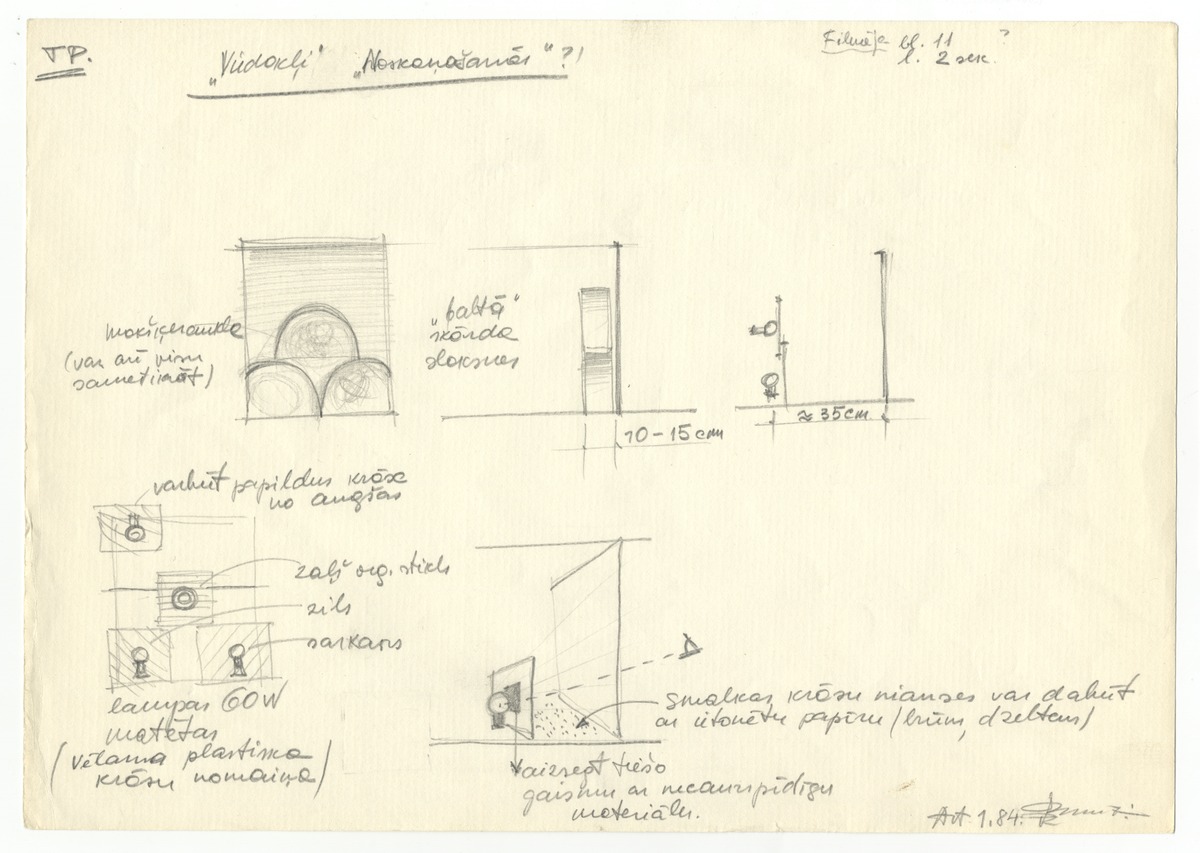 TP.
"Viedokļi" "Noskaņošanās"?!
Filmēja bl. 11 ?
l. 2 sek.
(var arī visu
"baltā"
skārda
sloksnes
10-15 cm
≈ 35 cm
varbūt papildus krāsa
no augšas
zaļš org. stikls
zils
sarkans
lampas 60W
matētas
(vēlama plastiska
krāsu nomaiņa)
Smalkas krāsu nianses var dabūt
ar ietonētu papīru (brūns, dzeltens)
aizsegt tiešo
gaismu ar necaurspīdīgu
materiālu.
1.84.